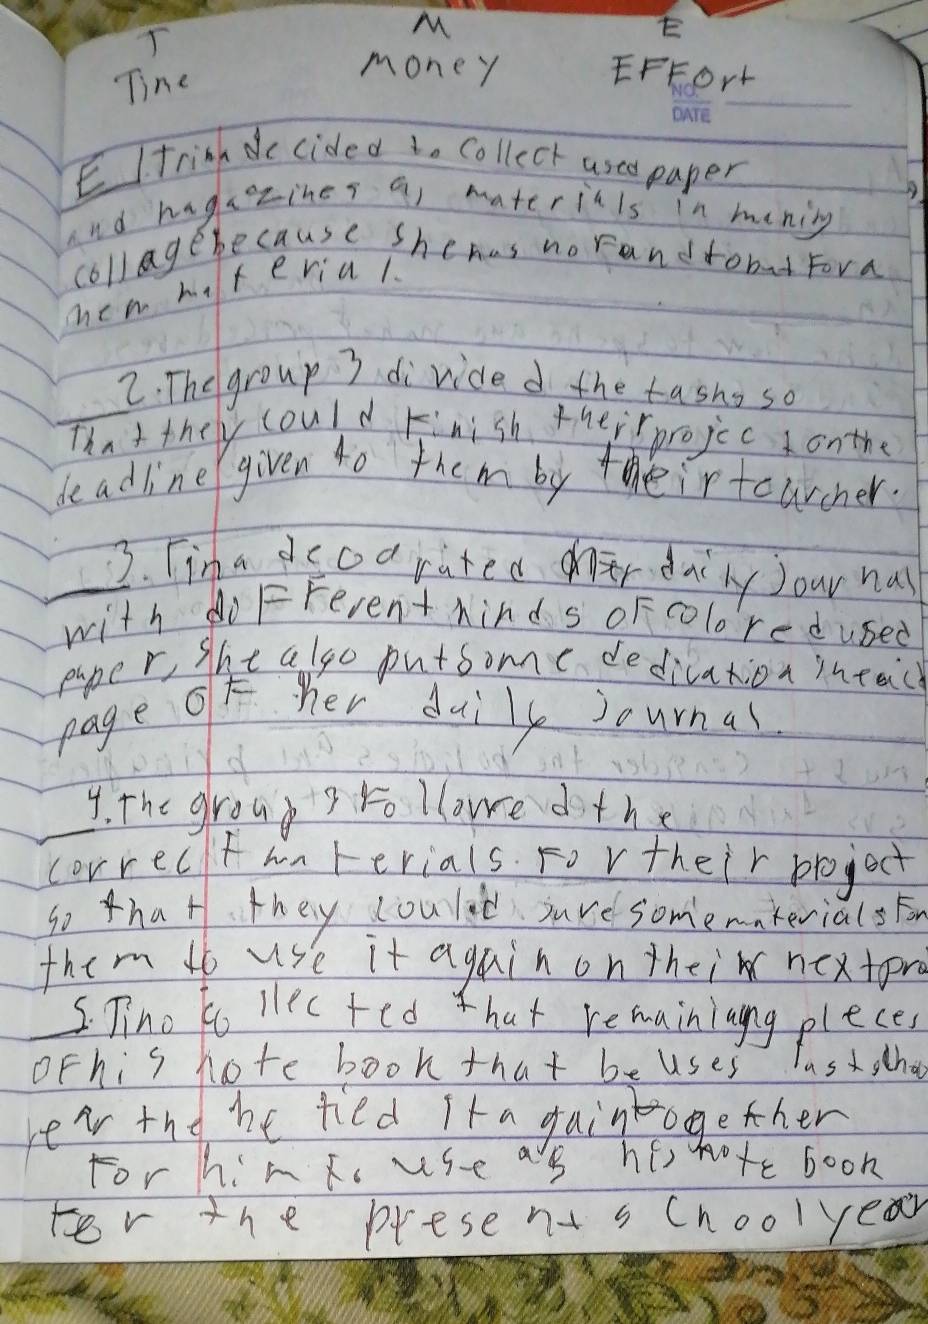 T M E
Time Money EFFort
NO.
DATE
E 1. Trina decided to collect used paper
and magazines as materials in making
collage because she has no Fund to but For a
new material.
2. The group 3 divided the tasks so
That they could Finish their project on the
deadline given to them by their teacher.
3. Tina decorated her daily journal
with diFFerent kinds oF colored used
paper, she also put some dedication in each
page oF her daily journal.
4. The group 3 Followed the
correct materials For their project
so that they could save some materials For
them to use it again on their next pro
5. Tino collected that remaining pieces
oF his note book that he uses last
year the he tied it again together
For him to use as his note book
For the present school year